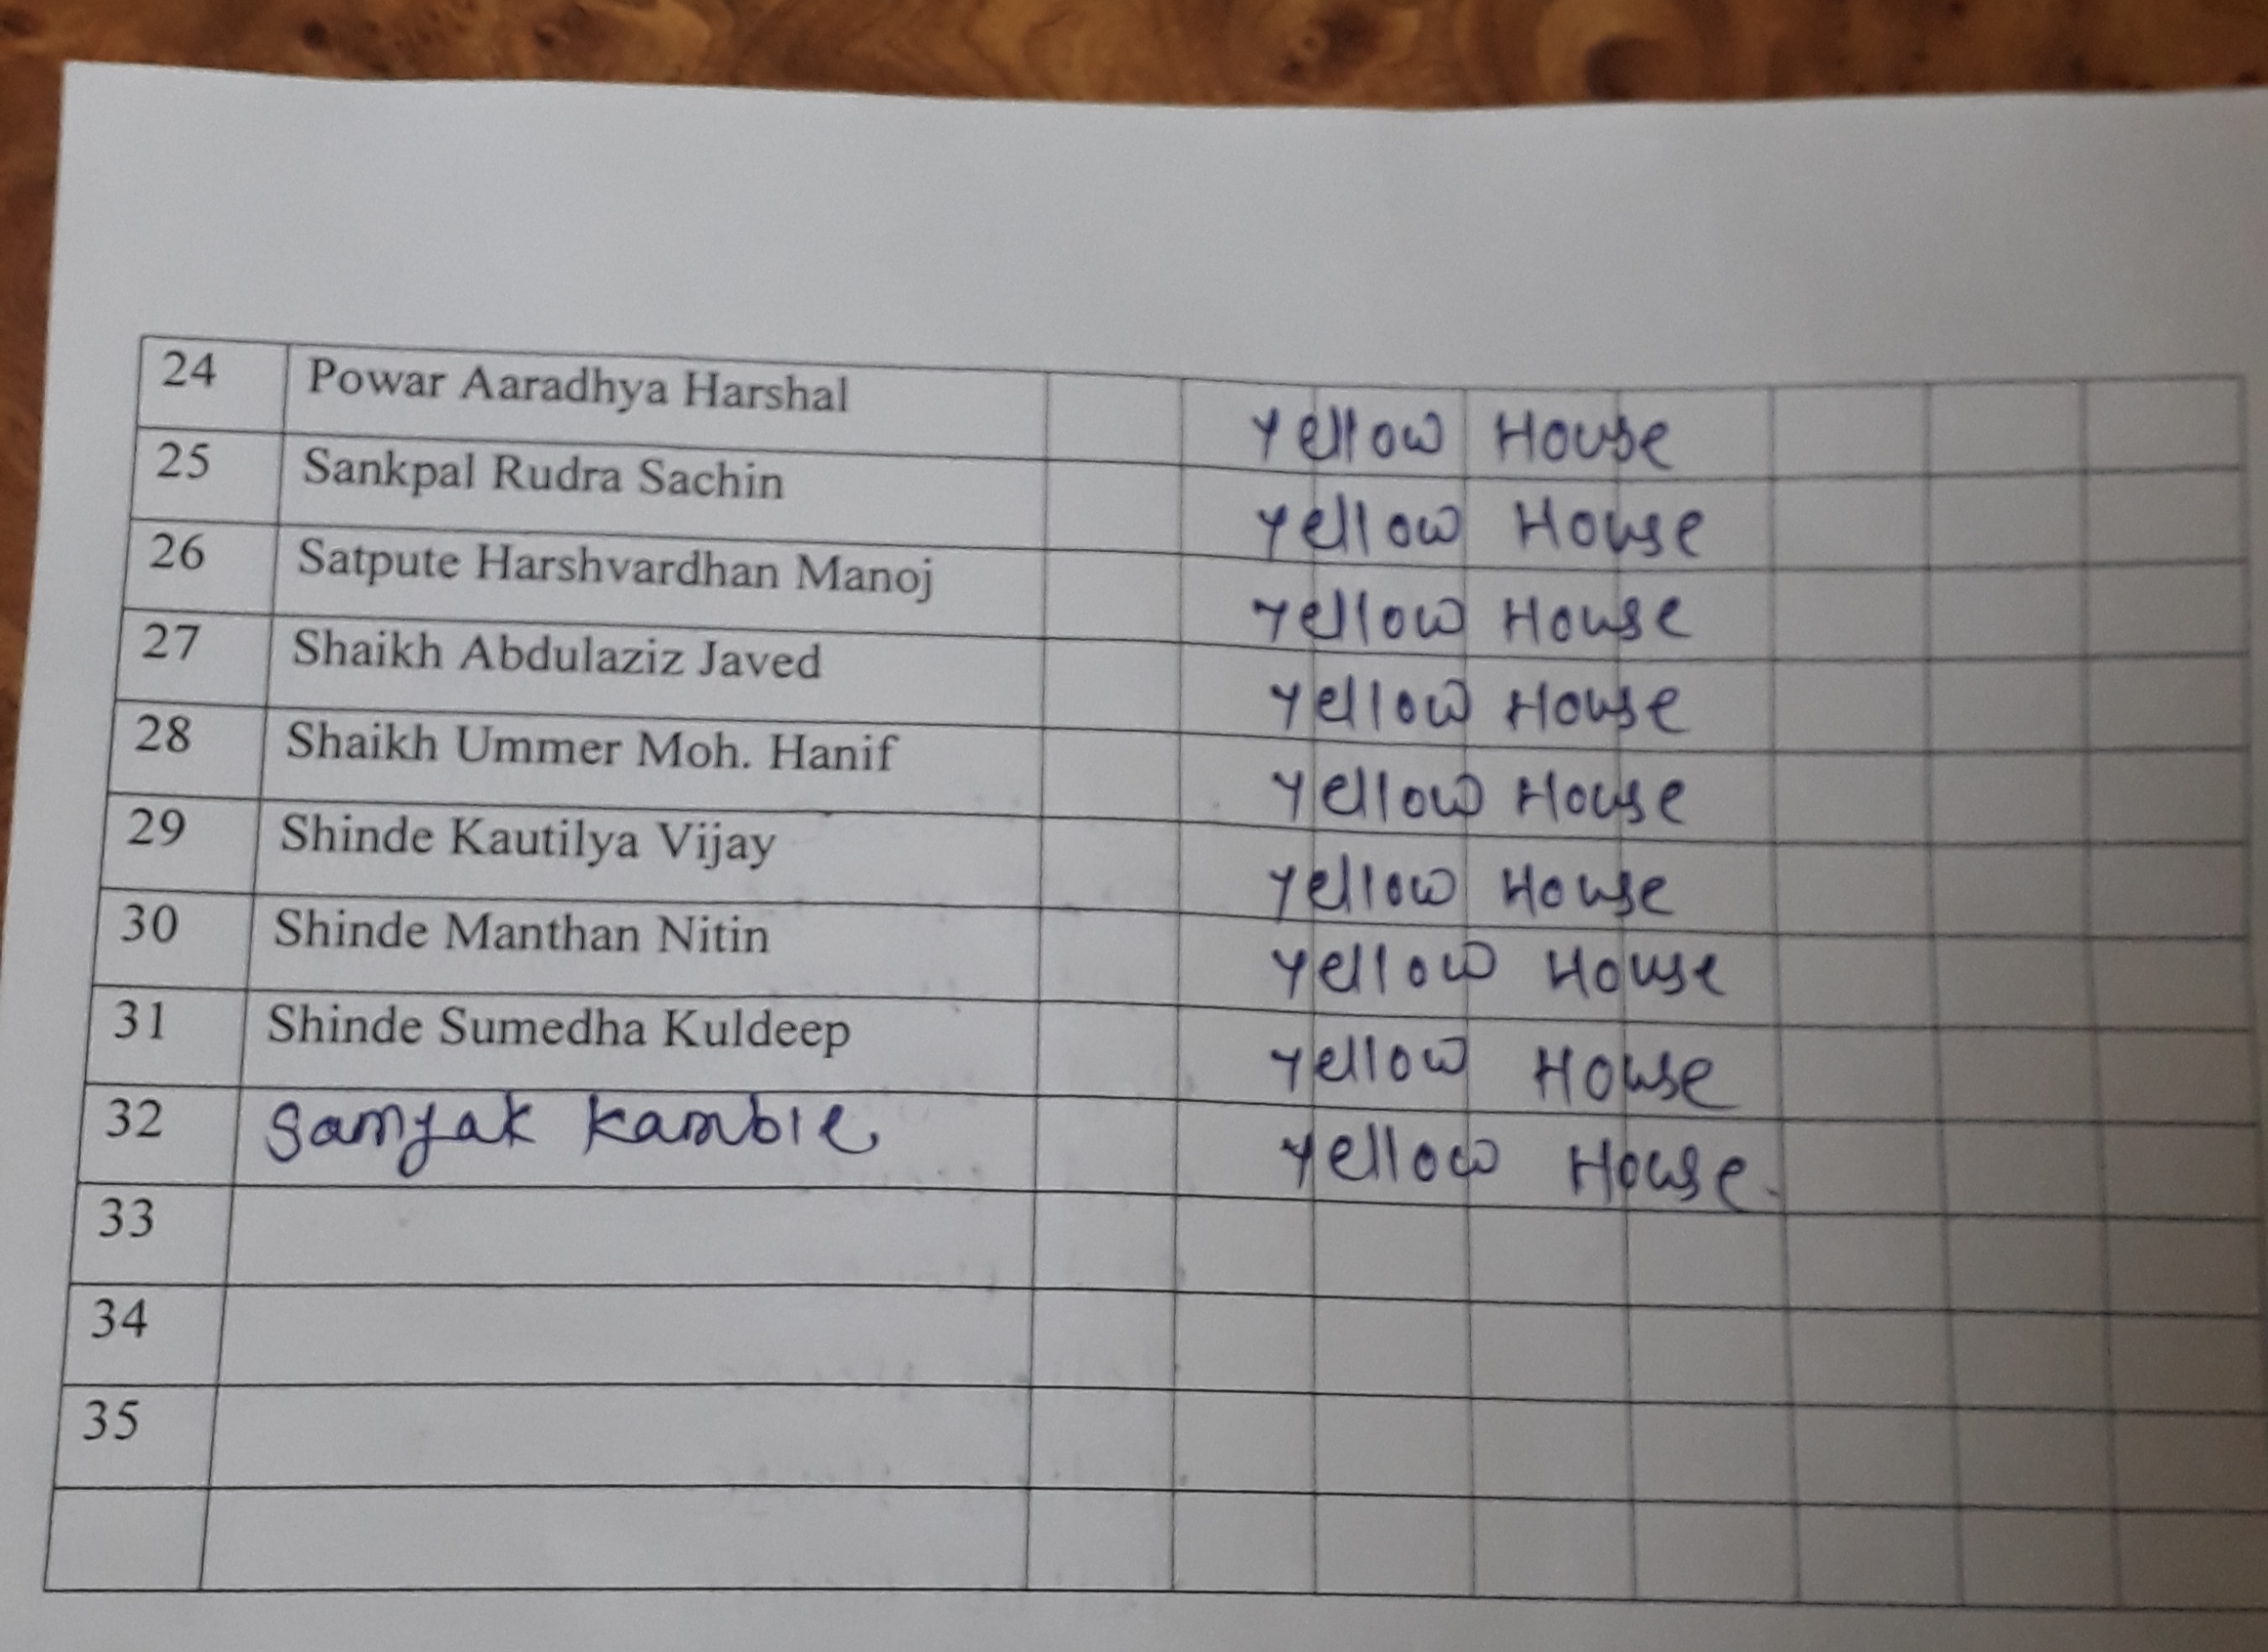 24 Powar Aaradhya Harshal Yellow House
25 Sankpal Rudra Sachin Yellow House
26 Satpute Harshvardhan Manoj Yellow House
27 Shaikh Abdulaziz Javed Yellow House
28 Shaikh Ummer Moh. Hanif Yellow House
29 Shinde Kautilya Vijay Yellow House
30 Shinde Manthan Nitin Yellow House
31 Shinde Sumedha Kuldeep Yellow House
32 Samyak Kamble Yellow House.
33
34
35